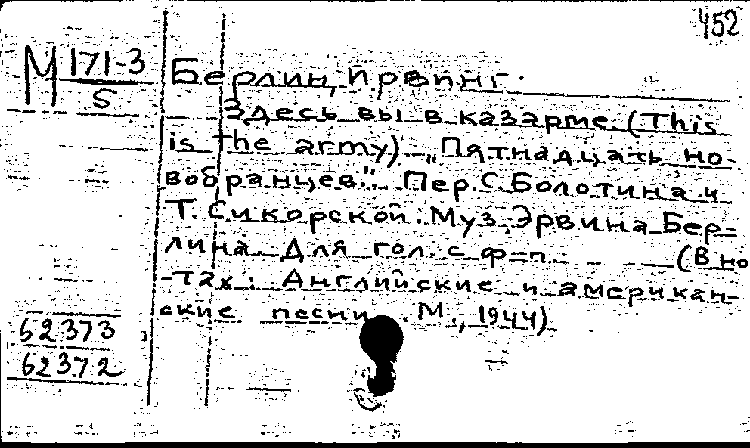 452
М 171-3
5
Берлин, Ирвинг.
Здесь вы в казарме. (This
is the army). „Пятнадцать но-
вобранцев". Пер. С. Болотина и
Т. Сикорской. Муз. Эрвина Бер-
лина. Для гол. с ф-п. (В но-
тах: Английские и американ-
ские песни. М., 1944)
62373
62372